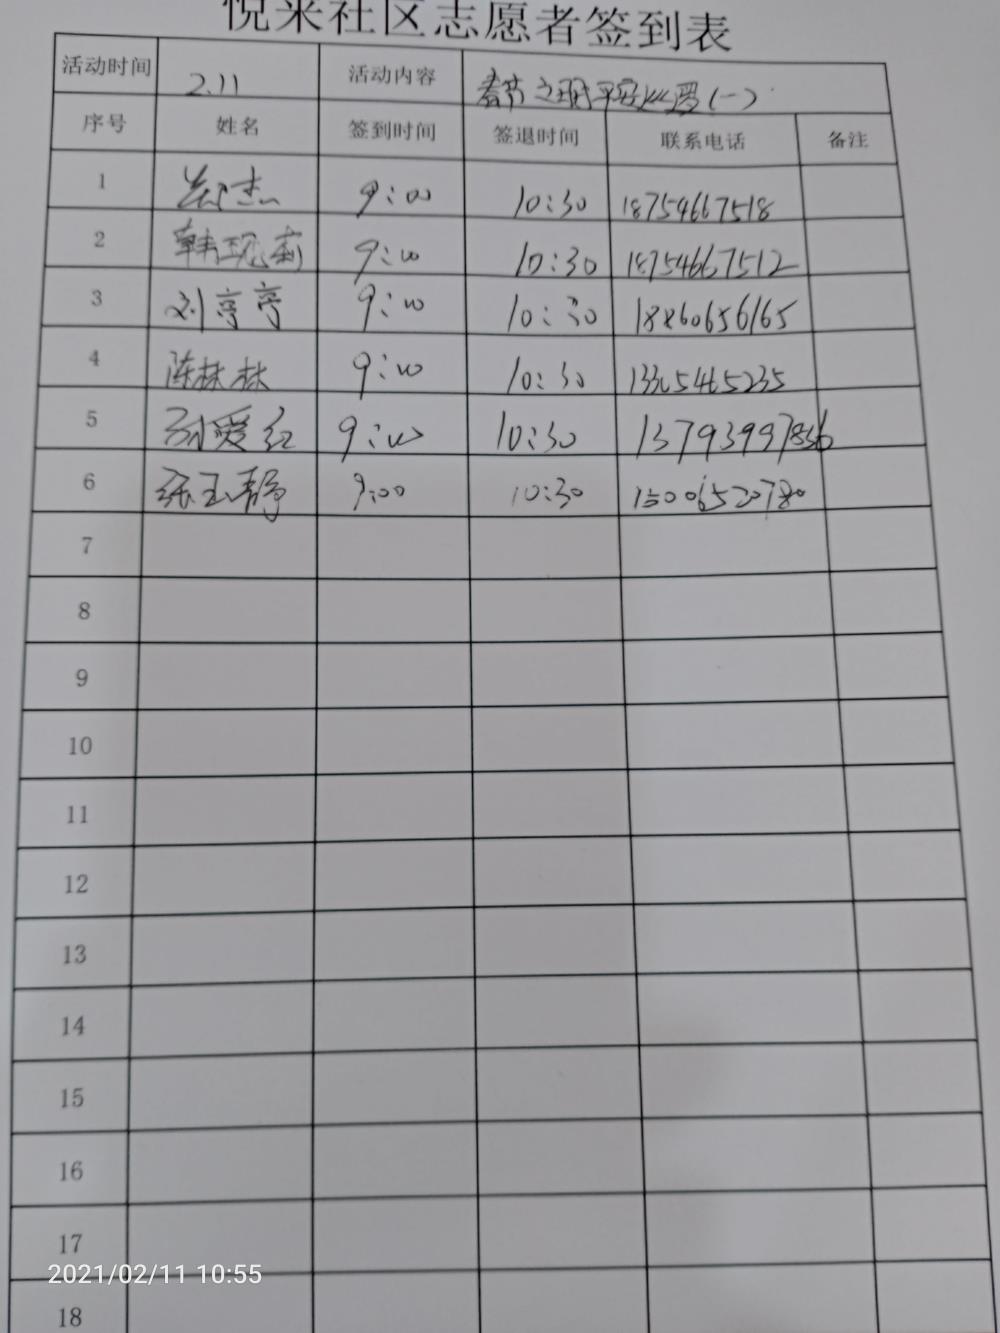 悦来社区志愿者签到表
活动时间 2.11 活动内容 春节 平安 (一)
序号 姓名 签到时间 签退时间 联系电话 备注
1 杰 9:00 10:30 18754667518
2 韩现 9:00 10:30 18754667512
3 刘亭亭 9:00 10:30 18860656165
4 陈林林 9:00 10:30 13305465235
5 孙爱红 9:00 10:30 13793997836
6 张玉静 9:00 10:30 15006520780
7
8
9
10
11
12
13
14
15
16
17
2021/02/11 10:55
18